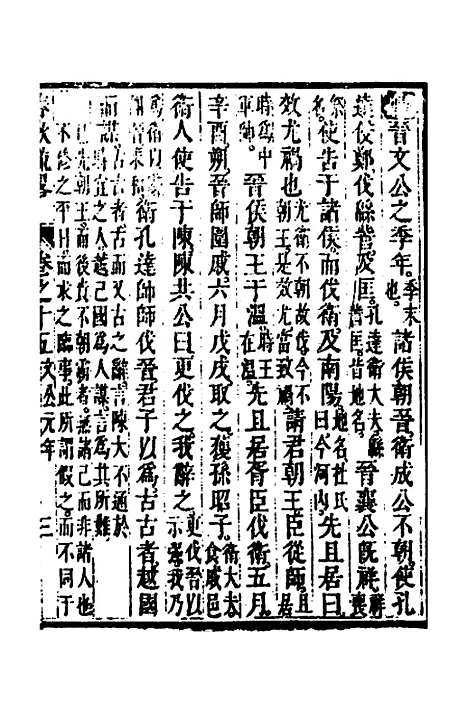 晉文公之季年季末也諸侯朝晉衛成公不朝使孔
達侵鄭伐緜訾及匡孔達衛大夫緜訾匡皆地名晉襄公既祥祥喪
祭名使告于諸侯而伐衛及南陽地名杜氏曰今河內先且居曰
效尤禍也尤衛不朝故伐今不朝王是效尤當致禍請君朝王臣從師且居
時為中軍帥晉侯朝王于溫時王在溫先且居胥臣伐衛五月
辛酉朔晉師圍戚六月戊戌取之獲孫昭子衛大夫食戚邑
衛人使告于陳陳共公曰更伐之我辭之更伐晉以示強我乃
為衛孔達帥師伐晉君子以為古古者越國
而謀古者古而又古之辭言陳大不通於
事宜之人越己國為人謀言為共所難
先朝王而後責不朝霸者無諸己而非諸人也
不脩之平日而求之臨事此所謂假之而不同于
春秋疏畧 卷之十五文公元年 三